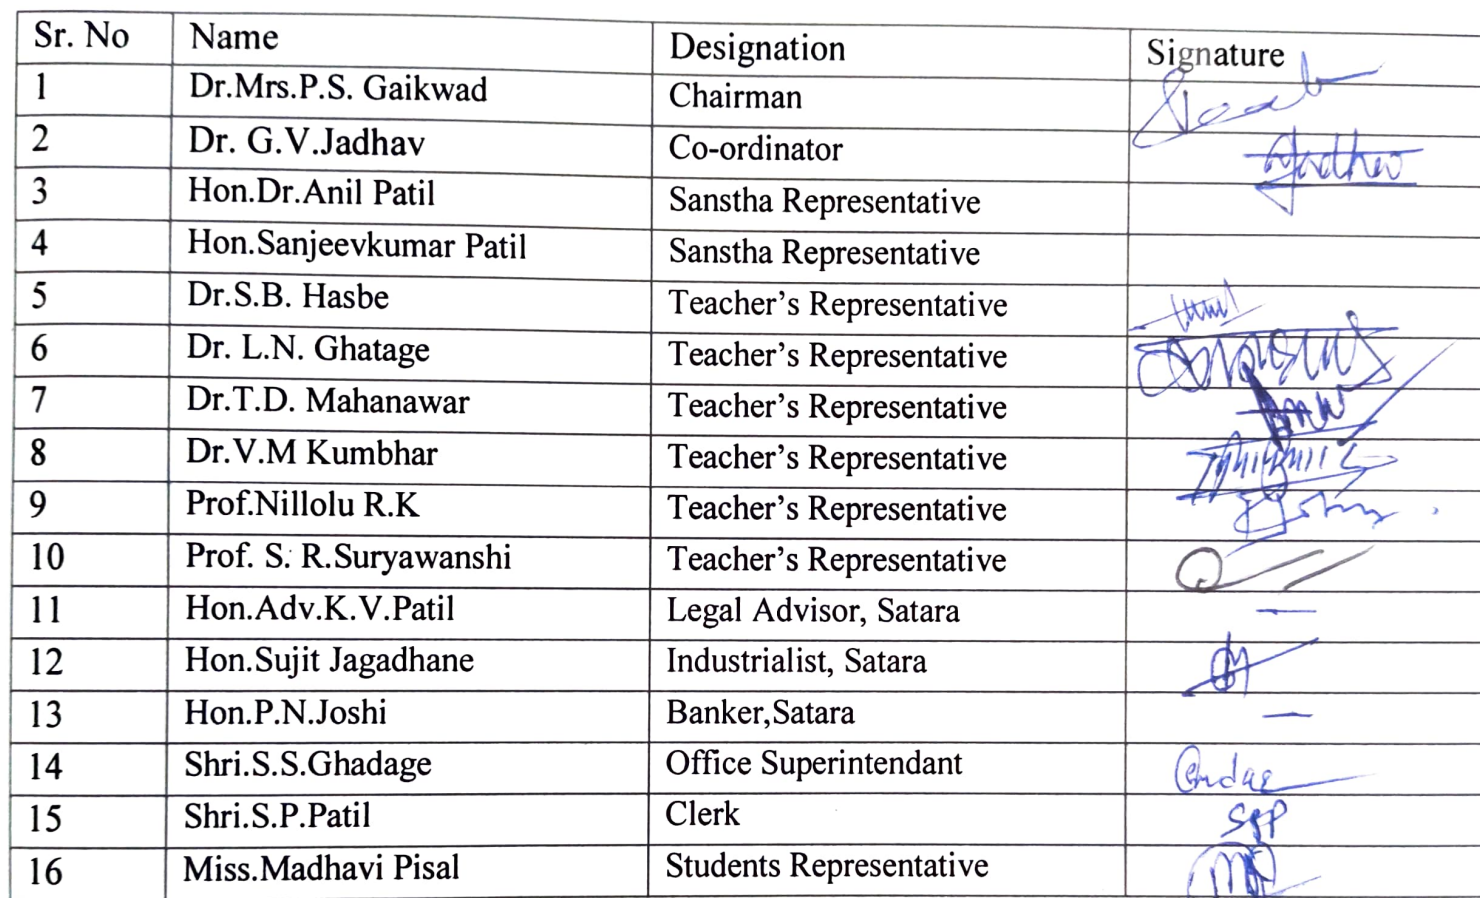 Sr. No Name Designation Signature
1 Dr.Mrs.P.S. Gaikwad Chairman
2 Dr. G.V.Jadhav Co-ordinator
3 Hon.Dr.Anil Patil Sanstha Representative
4 Hon.Sanjeevkumar Patil Sanstha Representative
5 Dr.S.B. Hasbe Teacher's Representative
6 Dr. L.N. Ghatage Teacher's Representative
7 Dr.T.D. Mahanawar Teacher's Representative
8 Dr.V.M Kumbhar Teacher's Representative
9 Prof.Nillolu R.K Teacher's Representative
10 Prof. S. R.Suryawanshi Teacher's Representative
11 Hon.Adv.K.V.Patil Legal Advisor, Satara —
12 Hon.Sujit Jagadhane Industrialist, Satara
13 Hon.P.N.Joshi Banker,Satara —
14 Shri.S.S.Ghadage Office Superintendant
15 Shri.S.P.Patil Clerk
16 Miss.Madhavi Pisal Students Representative